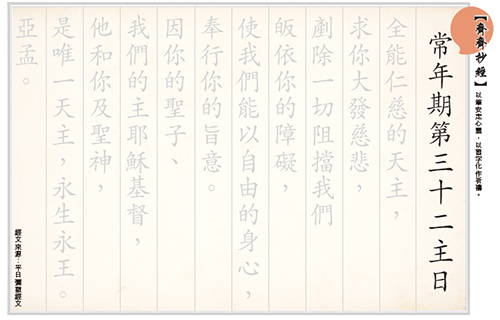 【齊齊抄經】
以筆安定心靈，以寫字化作祈禱。
常年期第三十二主日
全能仁慈的天主，
求你大發慈悲，
剷除一切阻擋我們
皈依你的障礙，
使我們能以自由的身心，
奉行你的旨意。
因你的聖子、
我們的主耶穌基督，
他和你及聖神，
是唯一天主，永生永王。
亞孟。
經文來源：平日彌撒經文